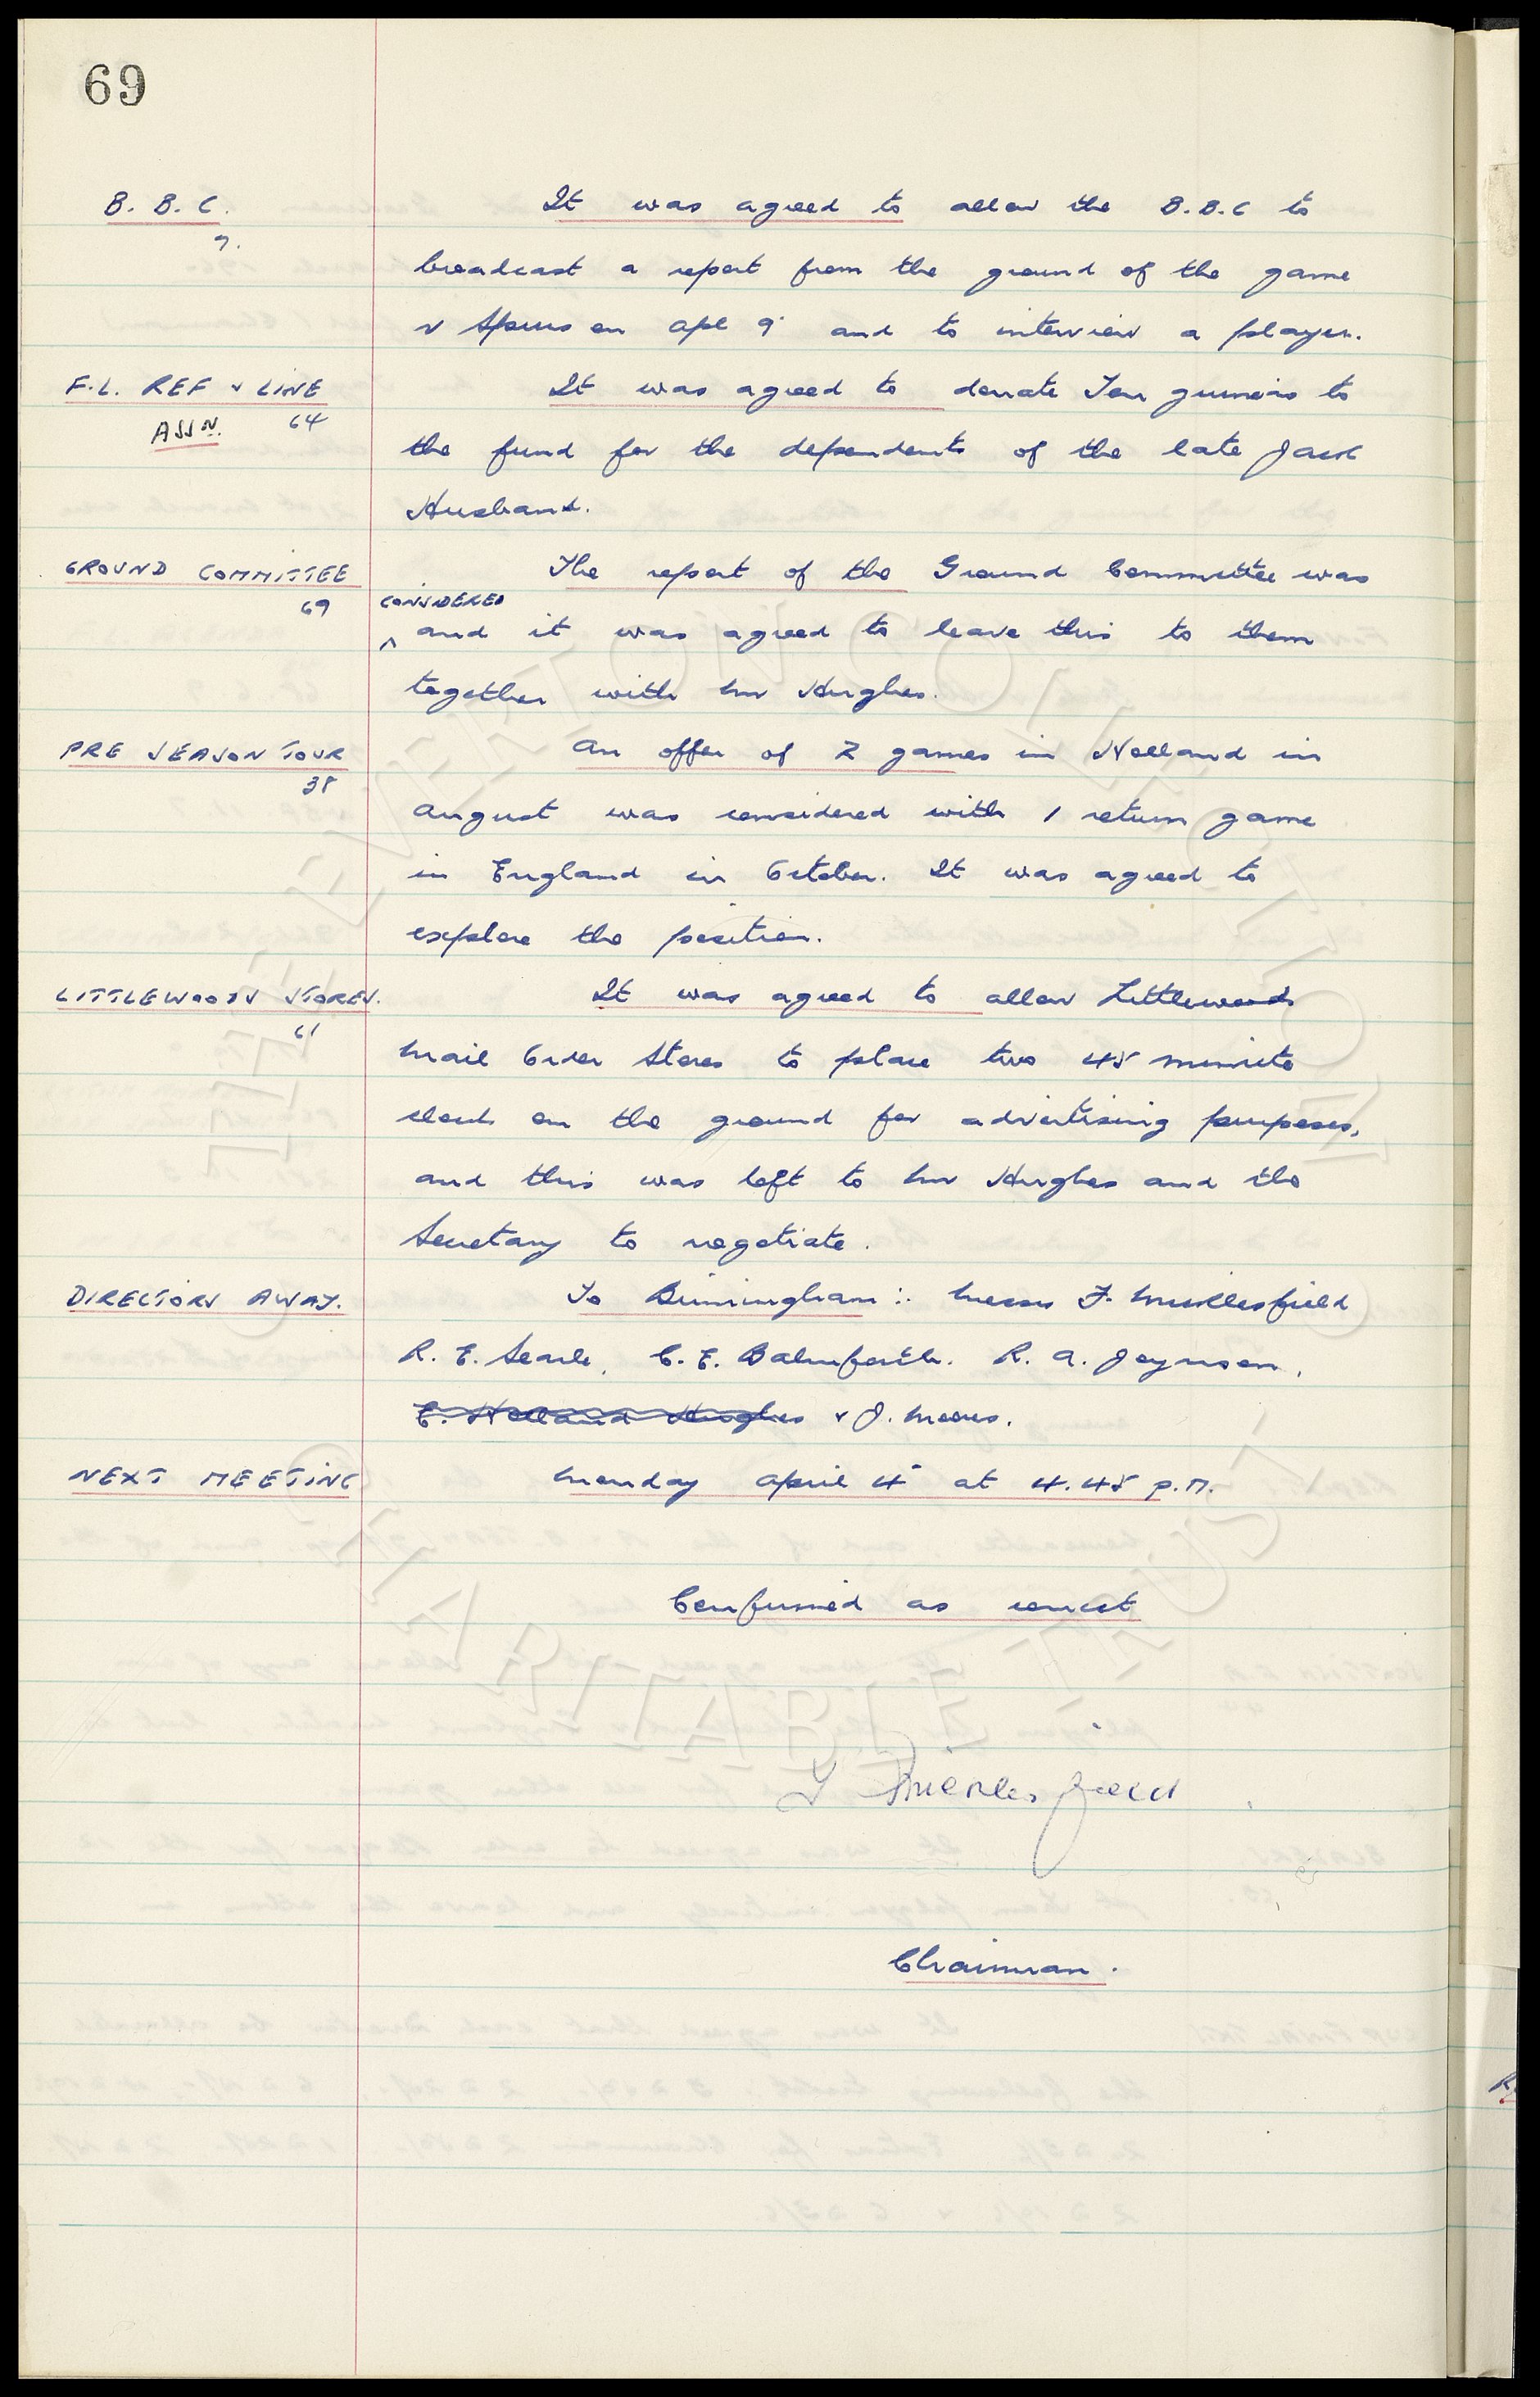 69
B. B. C. It was agreed to allow the B.B.C to
7. broadcast a report from the ground of the game
v Spurs on Apl 9 and to interview a player.
F.L. REF & LINE It was agreed to donate Ten guineas to
ASSN. 64 the fund for the dependents of the late Jack
Husband.
GROUND COMMITTEE The report of the Ground Committee was
69 CONSIDERED
^ and it was agreed to leave this to them
together with Mr Hughes.
PRE SEASON TOUR An offer of 2 games in Holland in
38 August was considered with 1 return game
in England in October. It was agreed to
explore the position.
LITTLEWOODS STORES. It was agreed to allow Littlewoods
61 Mail Order Stores to place two 45 minute
clocks on the ground for advertising purposes,
and this was left to Mr Hughes and the
Secretary to negotiate.
DIRECTORS AWAY. To Birmingham :. Messrs F. Micklesfield
R. E. Searle, C. E. Balmforth. R. A. Joynson,
C. Holland Hughes & J. Moores.
NEXT MEETING Monday April 4 at 4.45 p.m.
Confirmed as correct
F Micklesfield
Chairman.